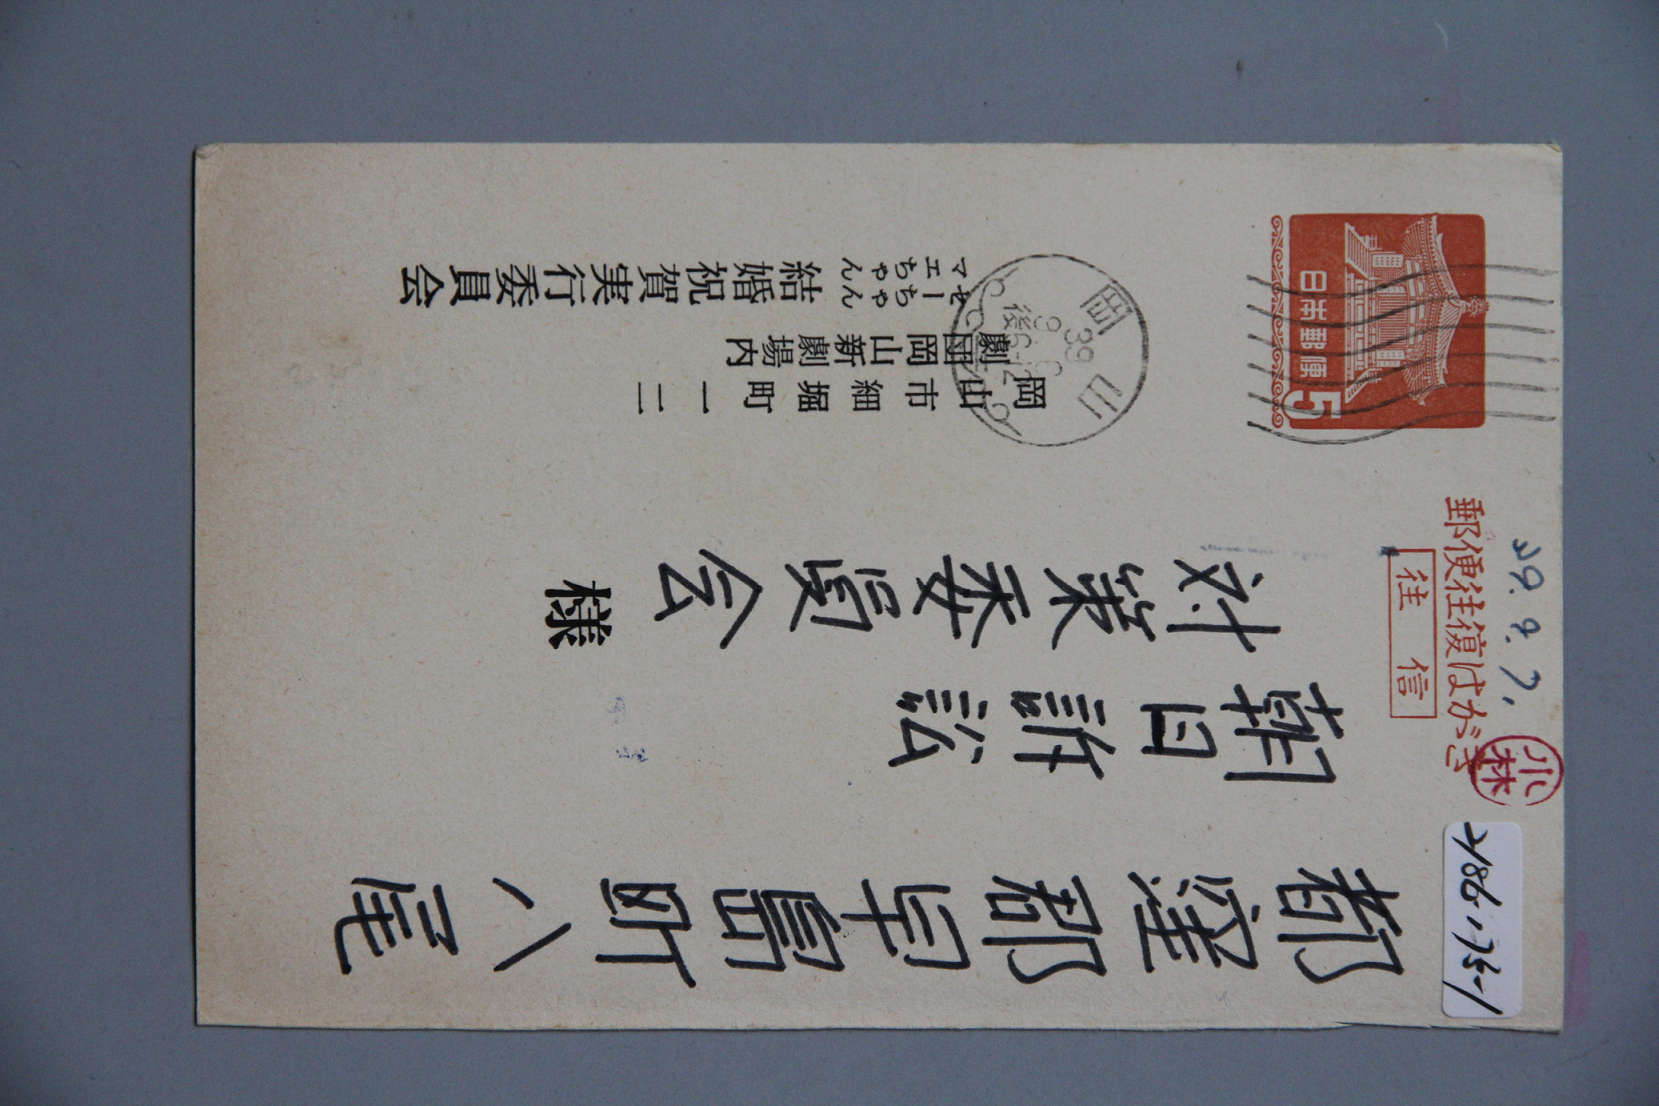 郵便往復はがき
往信
日本郵便
5
岡山
39
後6-12
39.9.7.
小林
486-1-735-1
都窪郡早島町八尾
朝日訴訟
対策委員会
様
岡山市細堀町一二
劇団岡山新劇場内
セーちゃん
マエちゃん
結婚祝賀実行委員会